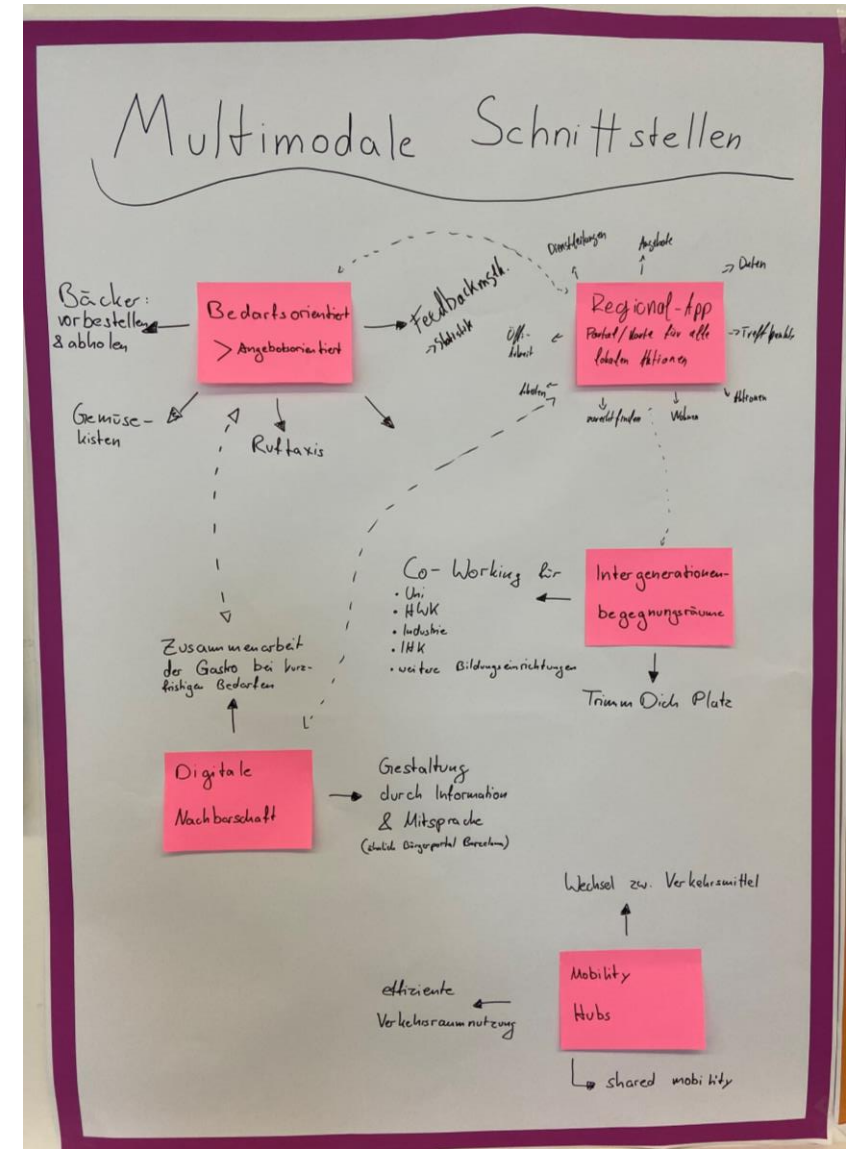 Multimodale Schnittstellen
Bäcker:
vorbestellen
& abholen
Bedarfsorientiert
> Angebotsorientiert
Feedbackmgk.
-> Statistik
Gemüse-
kisten
Ruftaxis
Dienstleistungen
Angebote
-> Daten
Regional-App
Portal/Karte für alle
lokalen Aktionen
Öffi.-
-> Treffpunkte
Aktionen
zurechtfinden
Wohnen
Co-Working für
• Uni
• HWK
• Industrie
• IHK
• weitere Bildungseinrichtungen
Intergenerationen-
begegnungsräume
Trimm Dich Platz
Zusammenarbeit
der Gastro bei kurz-
fristigen Bedarfen
Digitale
Nachbarschaft
Gestaltung
durch Information
& Mitsprache
(ähnlich Bürgerportal Barcelona)
Wechsel zw. Verkehrsmittel
Mobility
Hubs
effiziente
Verkehrsraumnutzung
shared mobility